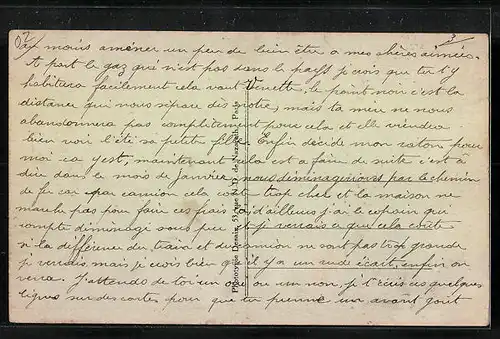 02
3
au moins amener un peu de bien être a mes chères aimées.
A part le gaz qui n'est pas dans le pays je crois que tu t'y
habituera facilement cela vaut Venette, le point noir c'est la
distance qui nous sépare des notre, mais ta mère ne nous
abandonnera pas complètement pour cela et elle viendra
bien voir l'été sa petite fille. Enfin décide mon raton pour
moi ca yest, maintenant cela est a faire de suite c'est à
dire dans le mois de Janvier, nous déménagerions par le chemin
de fer car par camion cela coute trop cher et la maison ne
marche pas pour faire ces frais la, d'ailleurs j'ai le copain qui
compte déménagé sous peu et je verrais ce que cela coute
si la différence du train et du camion ne sont pas trop grande
je verrais mais je crois bien qu'il y a un rude écart, enfin on
verra. J'attends de toi un oui ou un non, je t'écris ces quelques
lignes sur des cartes pour que tu prenne un avant goût
Phototypie Desaix, 51, rue Paris